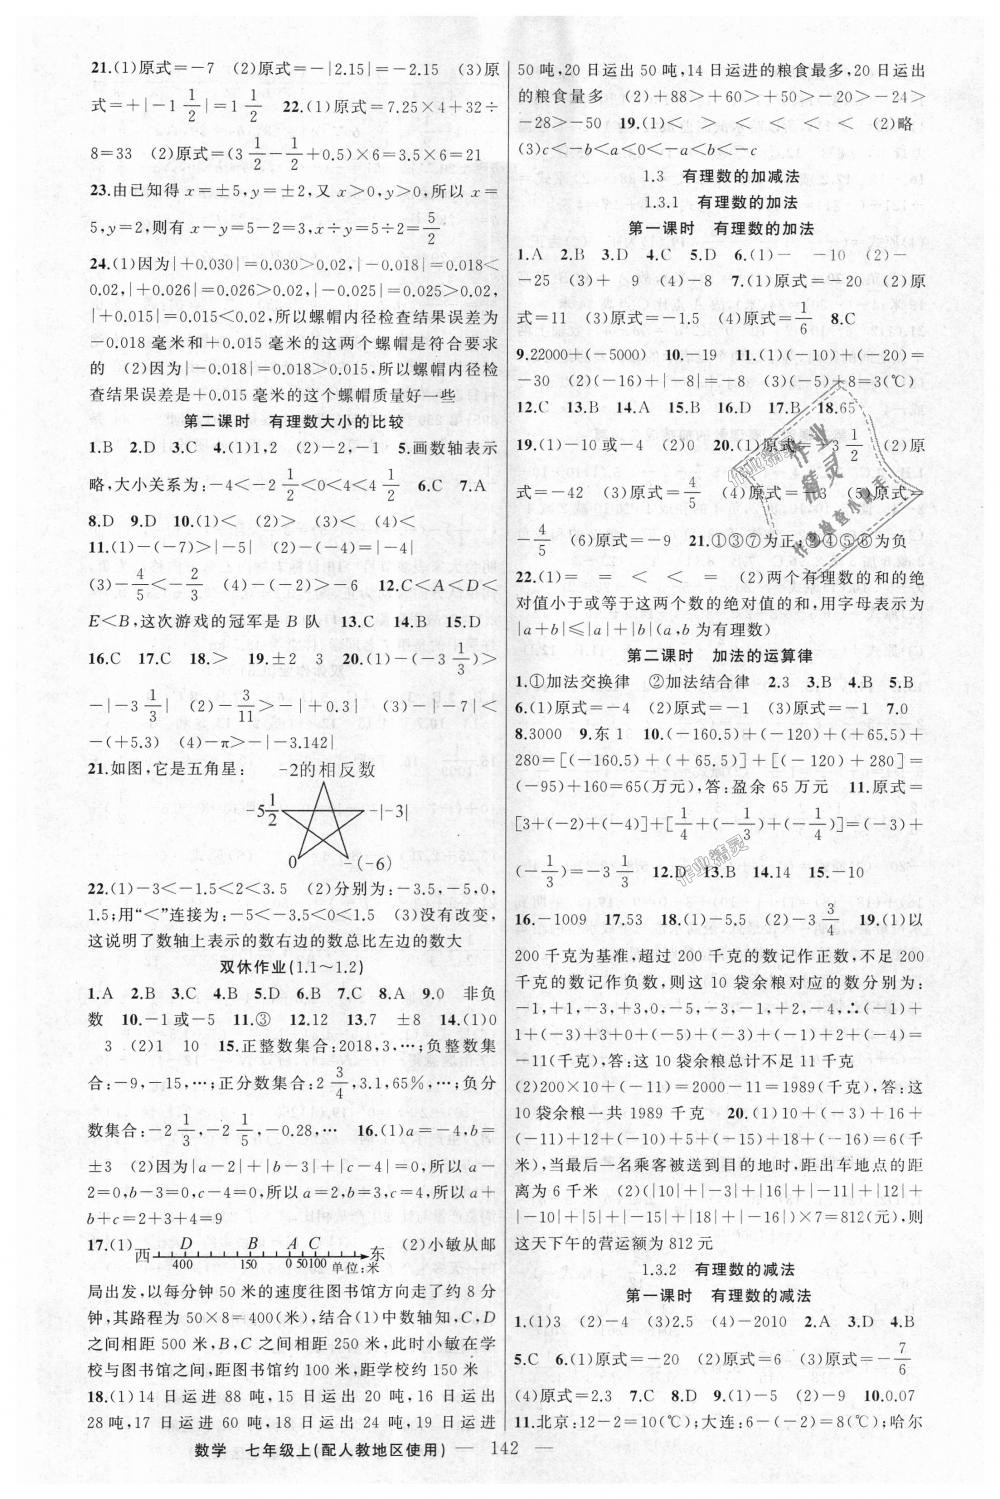 21.(1)原式=-7 (2)原式=-|2.15|=-2.15 (3)原
式=+|-1 1/2|=1 1/2 22.(1)原式=7.25×4+32÷
8=33 (2)原式=(3 1/2-1/2+0.5)×6=3.5×6=21
23.由已知得x=±5,y=±2,又x>0,y>0,所以x=
5,y=2,则有x-y=5-2=3,x÷y=5÷2=5/2
24.(1)因为|+0.030|=0.030>0.02,|-0.018|=0.018<
0.02,|+0.026|=0.026>0.02,|-0.025|=0.025>0.02,
|+0.015|=0.015<0.02,所以螺帽内径检查结果误差为
-0.018毫米和+0.015毫米的这两个螺帽是符合要求
的 (2)因为|-0.018|=0.018>0.015,所以螺帽内径检
查结果误差是+0.015毫米的这个螺帽质量好一些
第二课时 有理数大小的比较
1.B 2.D 3.C 4.(1)1,2 (2)-2,-1 5.画数轴表示
略,大小关系为:-4<-2 1/2<0<4<4 1/2 6.C 7.A
8.D 9.D 10.(1)< (2)> (3)< (4)<
11.(1)-(-7)>|-5| (2)-(-4)=|-4|
(3)-4/5<-2/3 (4)-(-2)>-6 12.C<A<D<
E<B,这次游戏的冠军是B队 13.C 14.B 15.D
16.C 17.C 18.> 19.±2 3 20.(1)-(-3 1/3)>
-|-3 1/3| (2)-3/11>-|+0.3| (3)-|-7|<
-(+5.3) (4)-π>-|-3.142|
21.如图,它是五角星:
-2的相反数
-5 1/2
-|-3|
0
-(-6)
22.(1)-3<-1.5<2<3.5 (2)分别为:-3.5,-5,0,
1.5;用“<”连接为:-5<-3.5<0<1.5 (3)没有改变,
这说明了数轴上表示的数右边的数总比左边的数大
双休作业(1.1~1.2)
1.A 2.B 3.C 4.B 5.D 6.B 7.C 8.A 9.0 非负
数 10.-1或-5 11.③ 12.12 13.7 ±8 14.(1)0
3 (2)1 10 15.正整数集合:2018,3,…;负整数集
合:-9,-15,…;正分数集合:2 3/4,3.1,65%,…;负分
数集合:-2 1/3,-2 1/5,-0.28,… 16.(1)a=-4,b=
±3 (2)因为|a-2|+|b-3|+|c-4|=0,所以a-
2=0,b-3=0,c-4=0,所以a=2,b=3,c=4,所以a+
b+c=2+3+4=9
17.(1) 西 D B A C 东 (2)小敏从邮
400 150 0 50 100 单位:米
局出发,以每分钟50米的速度往图书馆方向走了约8分
钟,其路程为50×8=400(米),结合(1)中数轴知,C,D
之间相距500米,B,C之间相距250米,此时小敏在学
校与图书馆之间,距图书馆约100米,距学校约150米
18.(1)14日运进88吨,15日运出20吨,16日运出
28吨,17日运进60吨,18日运出24吨,19日运进
50吨,20日运出50吨,14日运进的粮食最多,20日运出
的粮食量多 (2)+88>+60>+50>-20>-24>
-28>-50 19.(1)< > < < < < (2)略
(3)c<-b<a<0<-a<b<-c
1.3 有理数的加减法
1.3.1 有理数的加法
第一课时 有理数的加法
1.A 2.B 3.D 4.C 5.D 6.(1)- -10 (2)-
-25 (3)+ 9 (4)-8 7.(1)原式=-20 (2)原
式=11 (3)原式=-1.5 (4)原式=1/6 8.C
9.22000+(-5000) 10.-19 11.(1)(-10)+(-20)=
-30 (2)(-16)+|-8|=-8 (3)(-5)+8=3(℃)
12.C 13.B 14.A 15.B 16.D 17.B 18.65
19.(1)-10或-4 (2)0 20.(1)原式=-3 1/2 (2)原
式=-42 (3)原式=4/5 (4)原式=-3 (5)原式=
-4/5 (6)原式=-9 21.①③⑦为正;②④⑤⑥为负
22.(1)= = < < = (2)两个有理数的和的绝
对值小于或等于这两个数的绝对值的和,用字母表示为
|a+b|≤|a|+|b|(a,b为有理数)
第二课时 加法的运算律
1.①加法交换律 ②加法结合律 2.3 3.B 4.B 5.B
6.(1)原式=-4 (2)原式=-1 (3)原式=-1 7.0
8.3000 9.东1 10.(-160.5)+(-120)+(+65.5)+
280=[(-160.5)+(+65.5)]+[(-120)+280]=
(-95)+160=65(万元),答:盈余65万元 11.原式=
[3+(-2)+(-4)]+[1/4+(-1/3)+(-1/4)]=(-3)+
(-1/3)=-3 1/3 12.D 13.B 14.14 15.-10
16.-1009 17.53 18.(1)-5.5 (2)-3 3/4 19.(1)以
200千克为基准,超过200千克的数记作正数,不足200
千克的数记作负数,则这10袋余粮对应的数分别为:
-1,+1,-3,+3,0,-5,-3,-1,+2,-4,∴(-1)+
1+(-3)+3+0+(-5)+(-3)+(-1)+2+(-4)=
-11(千克),答:这10袋余粮总计不足11千克
(2)200×10+(-11)=2000-11=1989(千克),答:这
10袋余粮一共1989千克 20.(1)10+(-3)+16+
(-11)+12+(-10)+5+(-15)+18+(-16)=6(千
米),当最后一名乘客被送到目的地时,距出车地点的距
离为6千米 (2)(|10|+|-3|+|16|+|-11|+|12|+
|-10|+|5|+|-15|+|18|+|-16|)×7=812(元),则
这天下午的营运额为812元
1.3.2 有理数的减法
第一课时 有理数的减法
1.(1)3 (2)-4 (3)2.5 (4)-2010 2.A 3.D 4.B
5.C 6.(1)原式=-20 (2)原式=6 (3)原式=-7/6
(4)原式=2.3 7.C 8.D 9.(1)-5 (2)-9 10.0.07
11.北京:12-2=10(℃);大连:6-(-2)=8(℃);哈尔
数学 七年级上(配人教地区使用) — 142 —
作业精灵
作业检查小助手
作业精灵